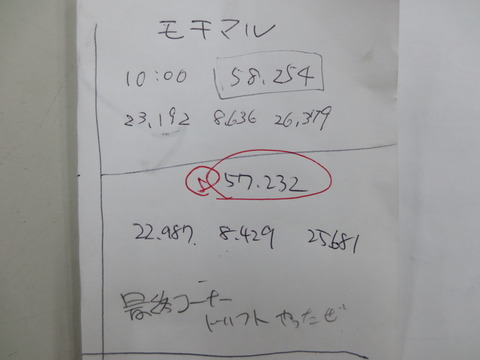 モチマル
10:00 58.254
23,192 8.636 26,379
57.232
22.987 8.429 25.681
最終コーナー
ドリフトやったぜ